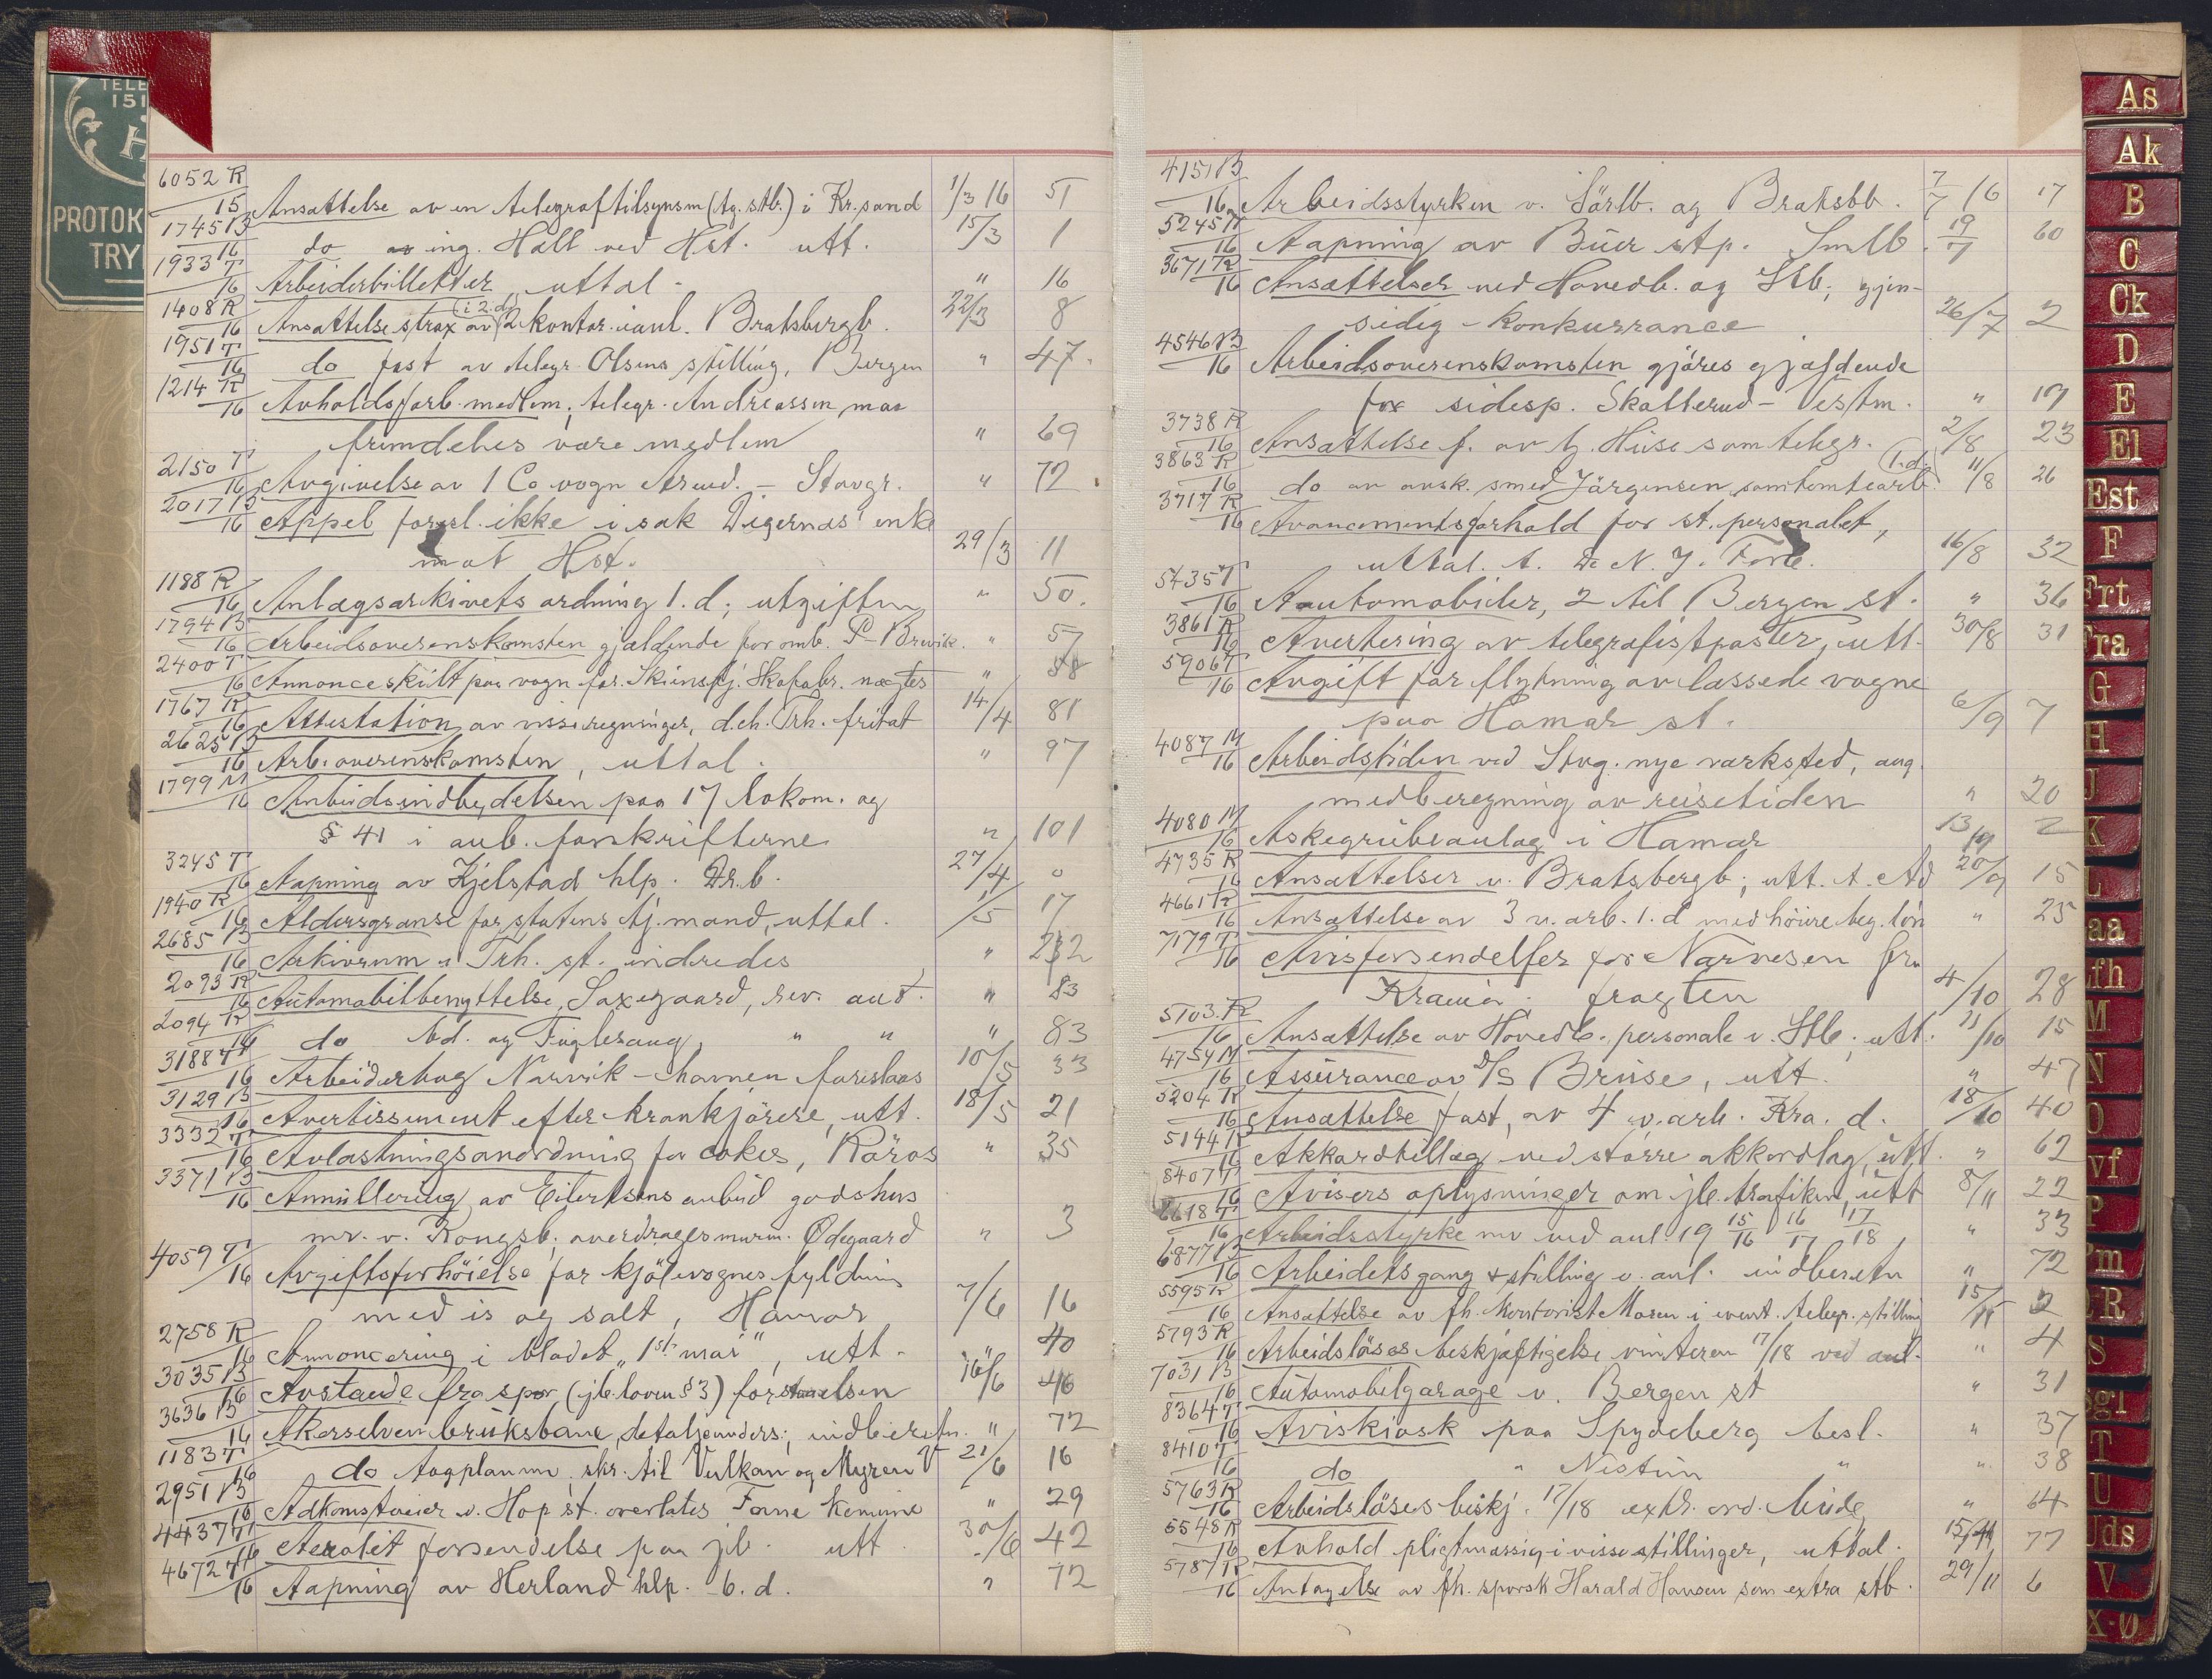 TELE
151
H
PROTOK
TRY
6052 R/15 Ansættelse av en telegraftilsynsm (tg. stb.) i Kr.sand 1/3 16 51
1745 B/16 do av ing. Holl ved Hst. utt. 15/3 1
1933 T/16 Arbeiderbilletter, uttal. " 16
1408 R/16 Ansættelse strax av (i 2. d.) 2 kontor. v. anl. Bratsbergb. 22/3 8
1951 T/16 do fast av telegr. Olsens stilling, Bergen " 47.
1214 R/16 Avholdsforb. medlem; telegr. Andreassen maa
fremdeles være medlem " 69
2150 T/16 Avgivelse av 1 Co vogn Arend. - Stavgr. " 72.
2017 B/16 Appel foresl. ikke i sak Digernæs' enke
mot Hst. 29/3 11
1188 R/16 Anlægsarkivets ordning 1. d.; utgiften " 50.
1794 B/16 Arbeidsoverenskomsten gjældende for omb. P-Brevik. " 57
2400 T/16 Annonceskilt paa vogn for Skiensfj. Skofabr. nægtes " 58
1767 R/16 Attestation av visse regninger, d.ch. Trh. fritat 14/4 81
2625 B/16 Arb. overenskomsten, uttal. " 97
1799 M/16 Anbudsindbydelsen paa 17 lokom. og
§ 41 i anb. forskrifterne " 101
3245 T/16 Aapning av Kjelstad hlp. Dr.b. 27/4 0
1940 R/16 Aldersgrænse for statens tj.mænd, uttal. 1/5 17
2685 B/16 Arkivrum i Trh. st. indredes " 232
2093 R/16 Automobilbenyttelse, Saxegaard, rev. and. " 83
2094 R/16 do bd. og Fuglesang, " " " 83
3188 T/16 Arbeiderbog Narvik-havnen foreslaas 10/5 33
3129 B/16 Avertissement efter krankjörere, utt. 18/5 21
3332 T/16 Avlastningsanordning for cokes, Röros " 35
3371 B/16 Annullering av Eilertsens anbud godshus
mv. v. Kongsb. overdrages murm. Ödegaard " 3
4059 T/16 Avgiftsforhöielse for kjölevognes fyldning
med is og salt, Hamar 7/6 16
2758 R/16 Annoncering i bladet "1ste mai", utt. " 40
3035 B/16 Avstande fra spor (jb.loven § 3) forstaaelsen 16/6 46
3636 B/16 Akerselven bruksbane, detaljeunders.; indberetn. " 72
1183 T/16 do togplan mv. skr. til Vulkan og Myren V 21/6 16
2951 B/16 Adkomstveier v. Hop st. overlates Fane komune " 29
4437 T/16 Aerolit forsendelse paa jb. utt. 30/6 42
4672 T/16 Aapning av Herland hlp. b. d. " 72
4151 B/16 Arbeidsstyrken v. Sörlb. og Bratsbb. 7/7 16 17
5245 T/16 Aapning av Buer stp. Smlb. 19/7 60
3671 R/16 Ansættelser ved Hovedb. og Stb.; gjen-
sidig konkurrance 26/7 2
4546 B/16 Arbeidsoverenskomsten gjöres gjældende
for sidesp. Skatterud - Vestm. " 19
3738 R/16 Ansættelse f. av tj. Huse som telegr. 2/8 23
3863 R/16 do av avsk. smed Jörgensen som tomtearb. (1. d.) 11/8 26
3717 R/16 Avancementsforhold for st. personalet,
uttal. t. De N. J. Forb. 16/8 32
5435 T/16 Aautomobiler, 2 til Bergen st. " 36
3861 R/16 Avertering av telegrafistposter, utt. 30/8 31
5906 T/16 Avgift for flytning av læssede vogne
paa Hamar st. 6/9 7
4087 M/16 Arbeidstiden ved Stvg. nye verksted, ang.
medberegning av reisetiden " 20
4080 M/16 Askegrubeanlæg i Hamar 13/9 2
4735 R/16 Ansættelser v. Bratsbergb; utt. t. Ad 20/9 15
4661 R/16 Ansættelse av 3 v. arb. 1. d med höiere beg. lön " 25
7179 T/16 Avisforsendelser for Narvesen fra
Krania; fragten 4/10 28
5103 R/16 Ansættelse av Hovedb. personale v. Stb; utt. 11/10 15
4754 M/16 Assurance av D/S Bruse, utt. " 47
5204 R/16 Ansættelse fast, av 4 v. arb. Kra. d. 18/10 40
5144 R/16 Akkordtillæg ved större akkordlag, utt. " 62
8407 T/16 Avisers oplysninger om jb. trafiken, utt 8/11 22
6618 T/16 Arbeidsstyrke mv ved anl 19 15/16 16/17 17/18, " 33
6877 B/16 Arbeidets gang & stilling v. anl. indberetn " 72
5595 R/16 Ansættelse av fh. kontorist Moren i event. telegr. stilling 15/11 2
5793 R/16 Arbeidslöses beskjæftigelse vinteren 17/18 ved anl. " 4
7031 B/16 Automobilgarage v. Bergen st " 31
8364 T/16 Aviskiosk paa Spydeberg besl. " 37
8410 T/16 do " Nestun " " 38
5763 R/16 Arbeidslöses beskj. 17/18 extr. ord. bude " 64
5548 R/16 Avhold pligtmæssig i visse stillinger, uttal. 15/11 77
5787 R/16 Antagelse av fh. sporsk Harald Hansen som extra stb. 29/11 6
As
Ak
B
C
Ck
D
E
El
Est
F
Frt
Fra
G
H
J
K
L
aa
fh
M
N
O
vf
P
Pm
R
S
Sgl
T
U
Uds
V
X-Ø